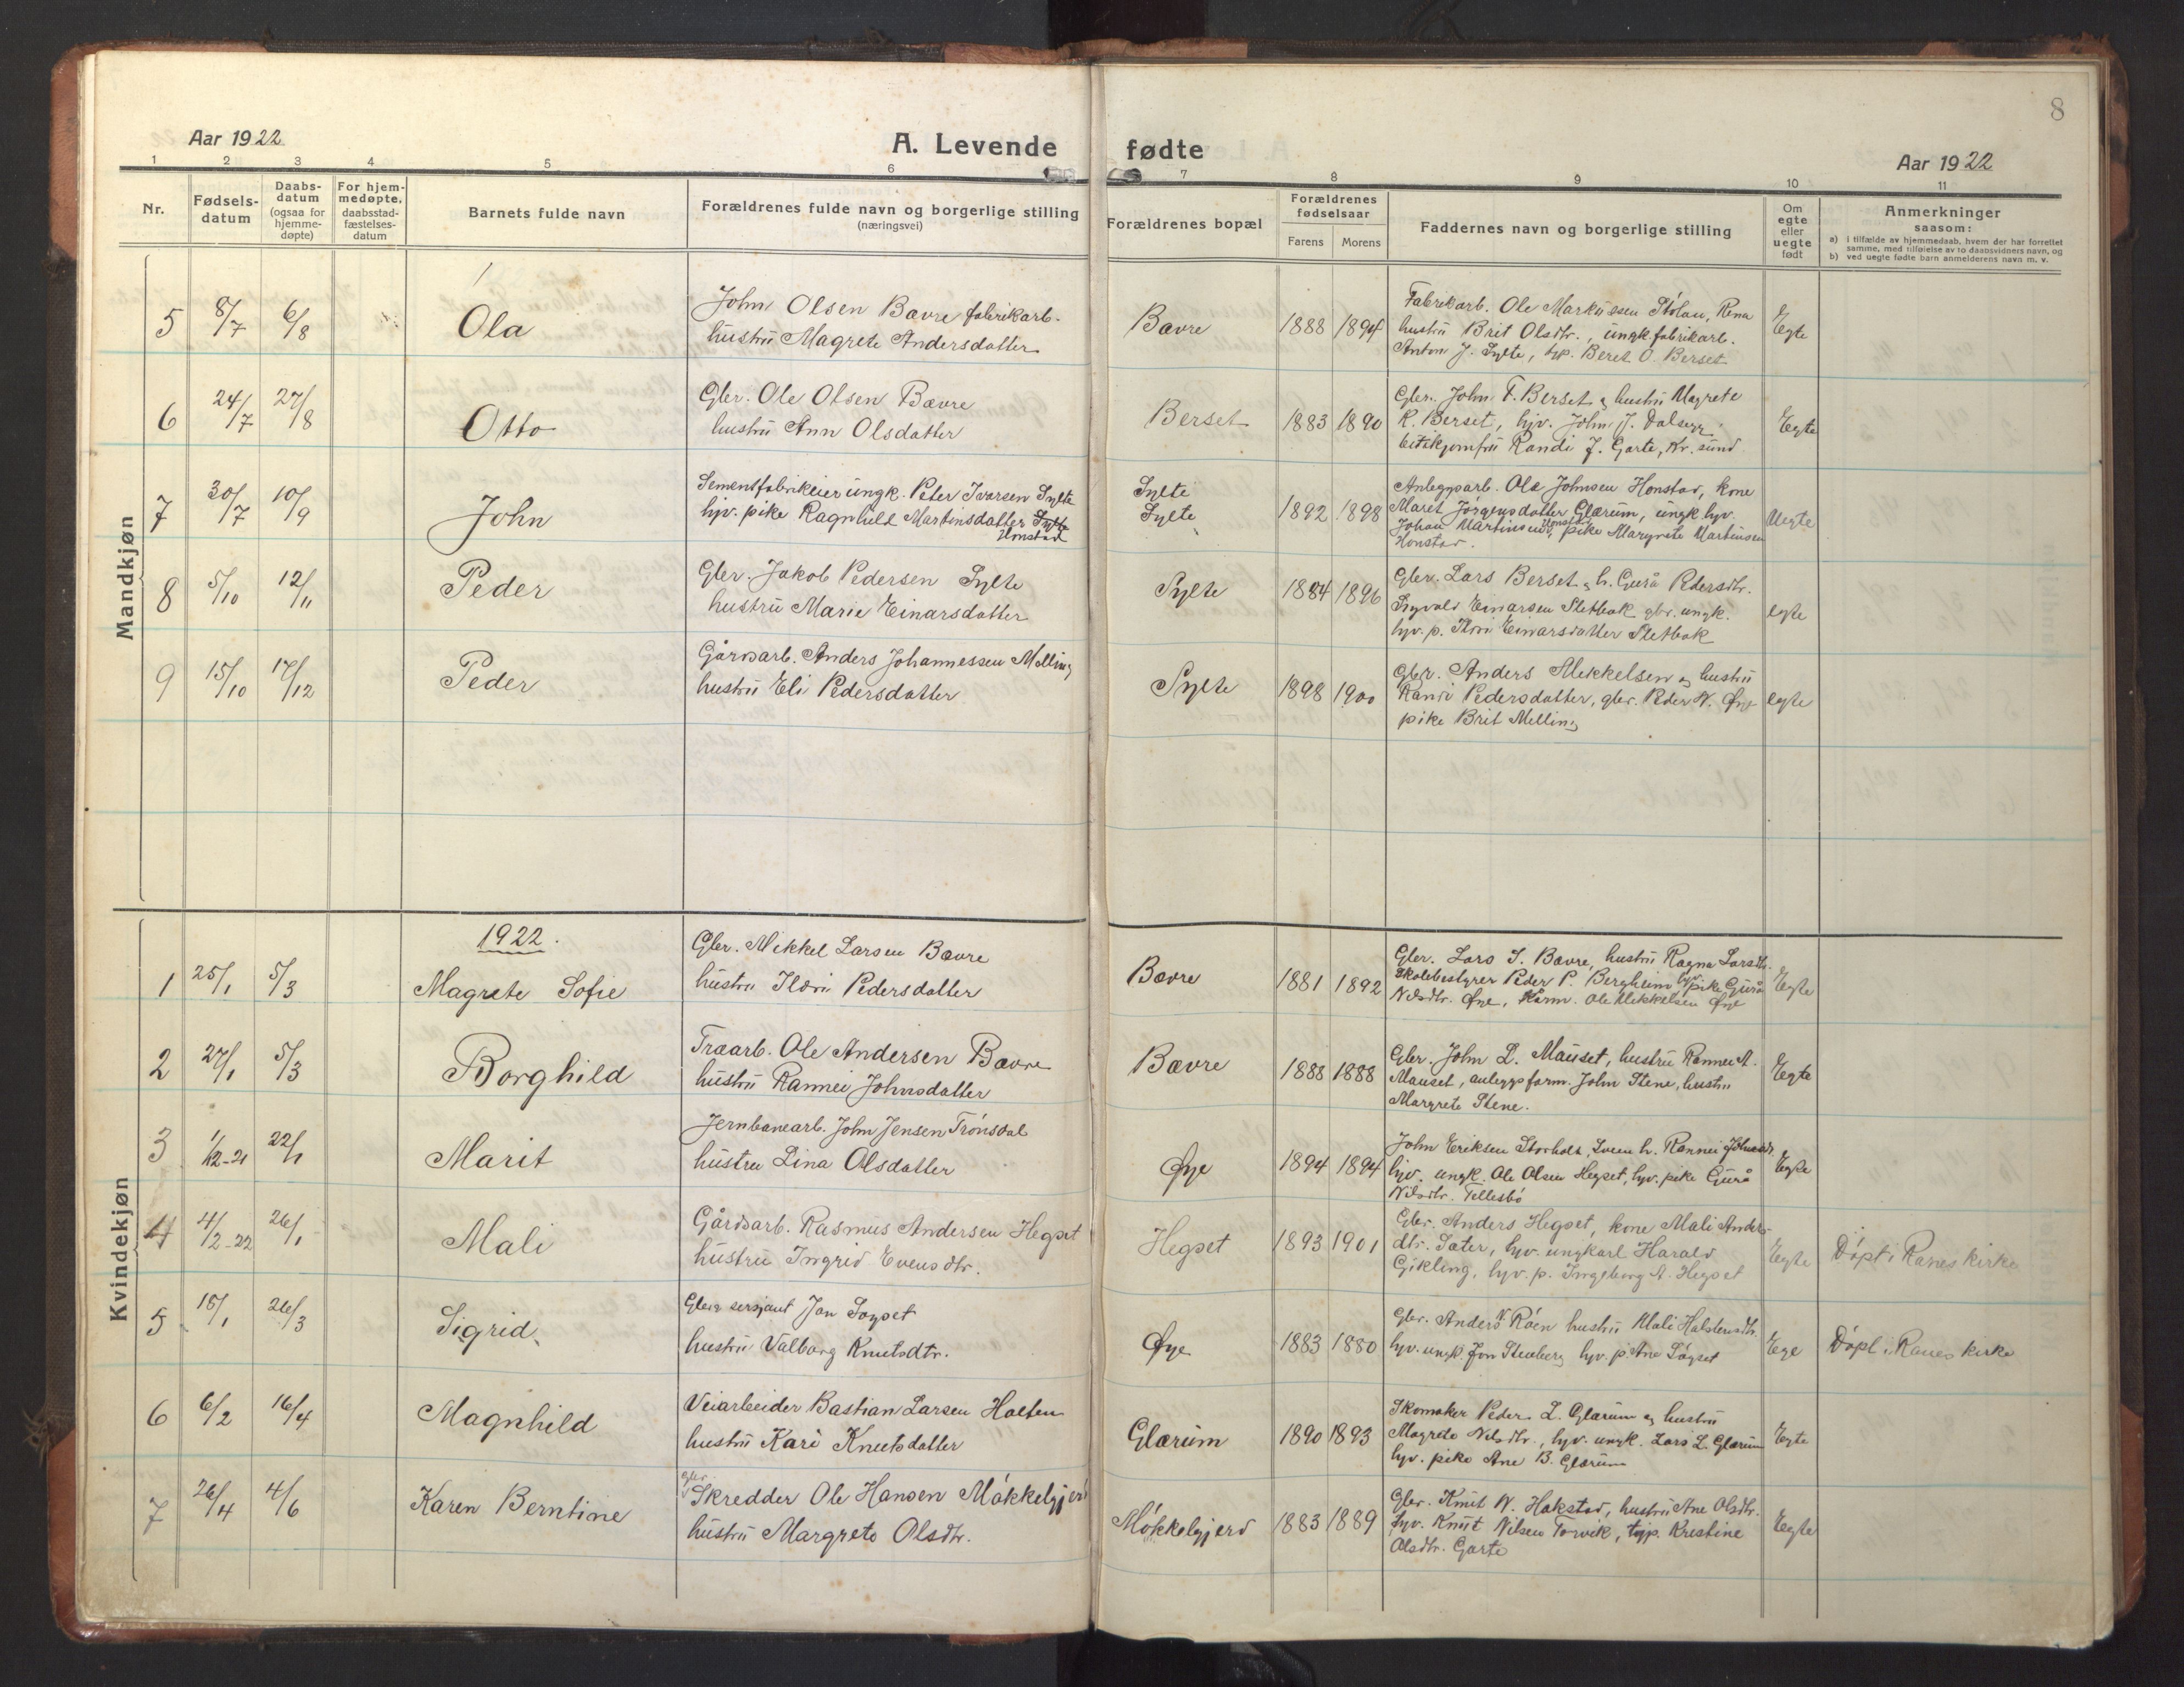 8
Aar 1922
A. Levende fødte
Aar 1922
1 2 3 4 5 6 7 8 9 10 11
Nr.
Fødsels-
datum
Daabs-
datum
(ogsaa for
hjemme-
døpte)
For hjem-
medøpte,
daabsstad-
fæstelses-
datum
Barnets fulde navn
Forældrenes fulde navn og borgerlige stilling
(næringsvei)
Forældrenes bopæl
Forældrenes
fødselsaar
Farens Morens
Faddernes navn og borgerlige stilling
Om
egte
eller
uegte
født
Anmerkninger
saasom:
a) i tilfælde av hjemmedaab, hvem der har forrettet
samme, med tilføielse av to daabsvidners navn, og
b) ved uegte fødte barn anmelderens navn m. v.
Mandkjøn
5 8/7 6/8 Ola
John Olsen Bævre fabrikarb.
hustru Magrete Andersdatter
Bævre 1888 1894
Fabrikarb. Ole Markussen Stølan, Rena
hustru Brit Olsdtr., ungk. fabrikarb.
Anton J. Sylte, tjp. Beret O. Berset
Egte
6 24/7 27/8 Otto
Gbr. Ole Olsen Bævre
hustru Ann Olsdatter
Berset 1883 1890
Gbr. John F. Berset og hustru Magrete
K. Berset, hjv. John J. Dalsegg
Randi J. Garte, Kr.sund
Egte
7 30/7 10/9 John
Sementfabrikeier ungk. Peter Ivarsen Sylte
hjv. pike Ragnhild Martinsdatter Sylte
Honstad
Sylte
Sylte
1892 1898
Anlegsarb. Ola Johnsen Honstad, kone
Maret Jørgensdatter Glærum, ungk. hjv.
Johan Martinsen Honstad, pike Margrete Martinsen
Honstad.
Uegte
8 5/10 12/11 Peder
Gbr. Jakob Pedersen Sylte
hustru Marie Einarsdatter
Sylte 1884 1896
Gbr. Lars Berset og h. Gurå Pedersdtr.
Einarsen Sletbak gbr. ungk.
hjv. p. Einarsdatter Sletbak
egte
9 15/10 17/12 Peder
Gårdsarb. Anders Johannessen Melling
hustru Eli Pedersdatter
Sylte 1898 1900
Gbr. Anders Mekkelsen og hustru
Randi Pedersdatter, gbr. Peder N. Øye
pike Brit Melling
egte
Kvindekjøn
1922.
1 25/1 5/3 Magrete Sofie
Gbr. Mikkel Larsen Bævre
hustru Pedersdatter
Bævre 1881 1892
Gbr. Lars S. Bævre, hustru Ragna Larsdtr.
Skolebestyrer Peder P. Bergheim hjv. pike Gurå
Nilsdtr. Øye, Ole Mekkelsen Øye
Egte
2 27/1 5/3 Borghild
Træarb. Ole Andersen Bævre
hustru Rannei Johnsdatter
Bævre 1888 1888
Gbr. John L. Mauset, hustru Rannei A.
Mauset, anleggsform. John Stene, hustru
Margrete Stene.
Egte
3 1/12-21 22/1 Marit
Jernbanearb. John Jensen Trønsdal
hustru Lina Olsdatter
Øye 1894 1894
John Eriksen Storholt, h. Rannei Johnsdtr.
hjv. ungk. Ole Olsen Hegset, hjv. pike Gurå
Nilsdtr. Tellesbø
Egte
4 4/2-22 26/1 Mali
Gårdsarb. Rasmus Andersen Hegset
hustru Ingrid Evensdtr.
Hegset 1893 1901
Gbr. Anders Hegset, kone Mali Anders-
dtr. Sæter, hjv. ungkarl Harald
Gikling, hjv. p. Ingeborg A. Hegset
Egte
Døpt i Ranes kirke
5 18/1 26/3 Sigrid
Gbr. sersjant Jon Sogset
hustru Valborg Knutsdtr.
Øye 1883 1880
Gbr. Anders N. Røen hustru Mali Halstensdtr.
hjv. ungk. Jon Stenberg hjv. p. Ane Søgset
Ege
Døpt i Ranes kirke
6 6/2 16/4 Magnhild
Veiarbeider Bastian Larsen Holten
hustru Kari Knutsdatter
Glærum 1890 1893
Skomaker Peder L. Glærum og hustru
Magrete Nilsdtr., hjv. ungk. Lars L. Glærum
hjv. pike Ane B. Glærum
Egte
7 26/4 4/6 Karen Berntine
gbr.
Skredder Ole Hansen Møkkelgjerd
hustru Margrete Olsdtr.
Møkkelgjerd 1883 1889
Gbr. Knut N. Hakstad, hustru Ane Olsdtr.
hjv. Knut Nilsen Torvik, tjp. Kristine
Olsdtr. Garte
Egte